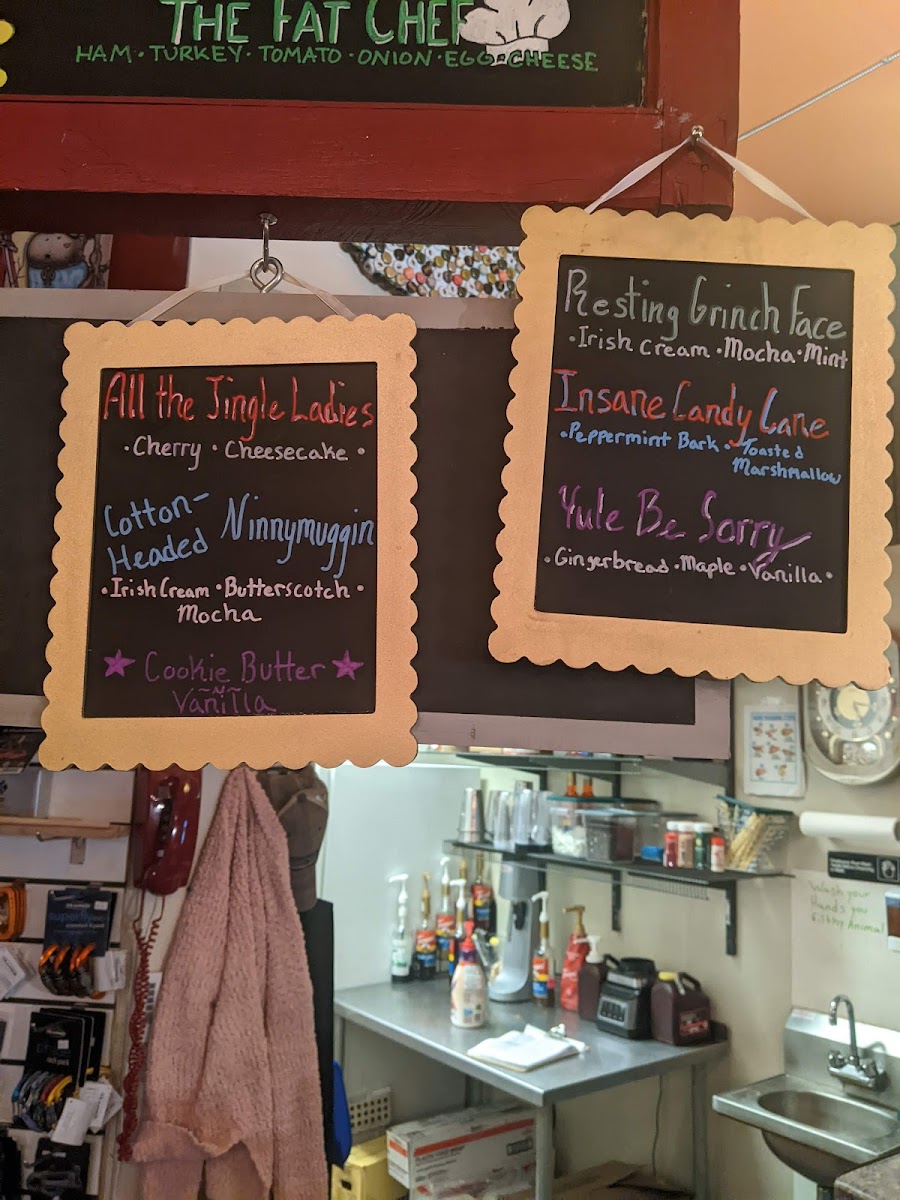 THE FAT CHEF
HAM · TURKEY · TOMATO · ONION · EGG · CHEESE
All the Jingle Ladies
· Cherry · Cheesecake ·
Cotton-
Headed Ninnymuggin
· Irish Cream · Butterscotch ·
Mocha
★ Cookie Butter ★
~N~
Vanilla
Resting Grinch Face
· Irish Cream · Mocha · Mint
Insane Candy Cane
· Peppermint Bark · Toasted
Marshmallow
Yule Be Sorry
· Gingerbread · Maple · Vanilla ·
Wash your
Hands you
Filthy Animal
superfly